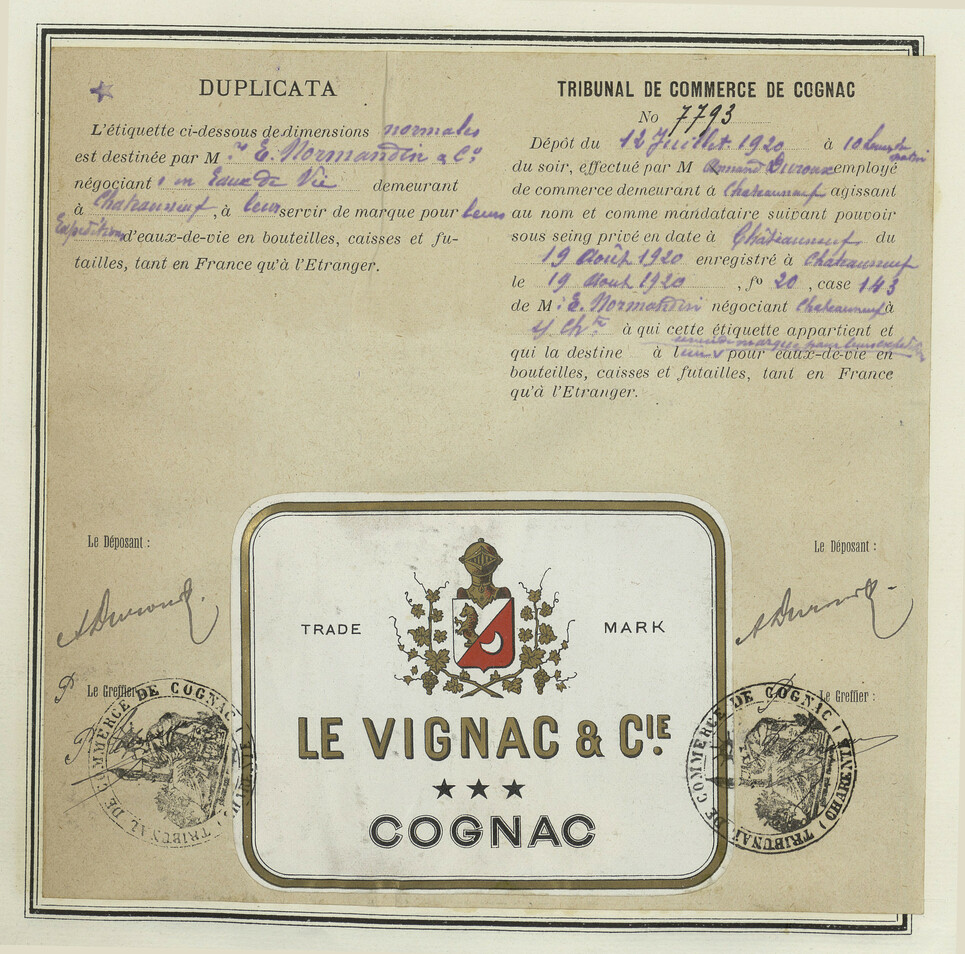 DUPLICATA
L'étiquette ci-dessous de dimensions normales
est destinée par M rs E. Normandin & Cie
négociants en Eaux de Vie demeurant
à Chateauneuf, à leur servir de marque pour leurs
Expéditions d'eaux-de-vie en bouteilles, caisses et fu-
tailles, tant en France qu'à l'Etranger.
TRIBUNAL DE COMMERCE DE COGNAC
No 7793
Dépôt du 12 Juillet 1920 à 10 heures
matin
du soir, effectué par M Armand Duroux employé
de commerce demeurant à Chateauneuf agissant
au nom et comme mandataire suivant pouvoir
sous seing privé en date à Châteauneuf du
19 Août 1920 enregistré à Chateauneuf
le 19 Aout 1920, fo 20, case 143
de M: E. Normandin négociant Chateauneuf à
s/ Chte à qui cette étiquette appartient et
qui la destine à pour eaux-de-vie en
bouteilles, caisses et futailles, tant en France
qu'à l'Etranger.
Le Déposant :
Le Déposant :
P Le Greffier
Le Greffier :
TRIBUNAL DE COMMERCE DE COGNAC
TRIBUNAL DE COMMERCE DE COGNAC (CHARENTE)
TRADE MARK
LE VIGNAC & CIE.
COGNAC